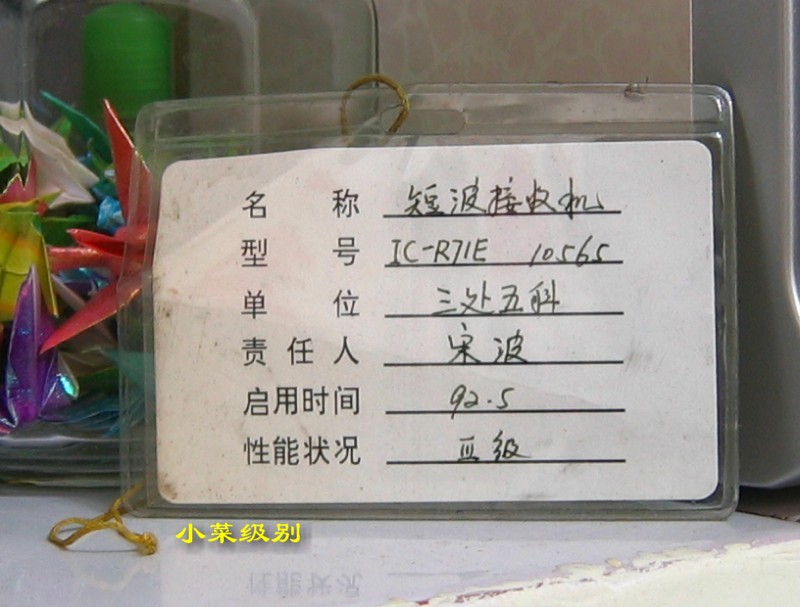 名 称 短波接收机
型 号 IC-R71E 10565
单 位 三处五科
责任人 宋波
启用时间 92.5
性能状况 Ⅲ级
小菜级别